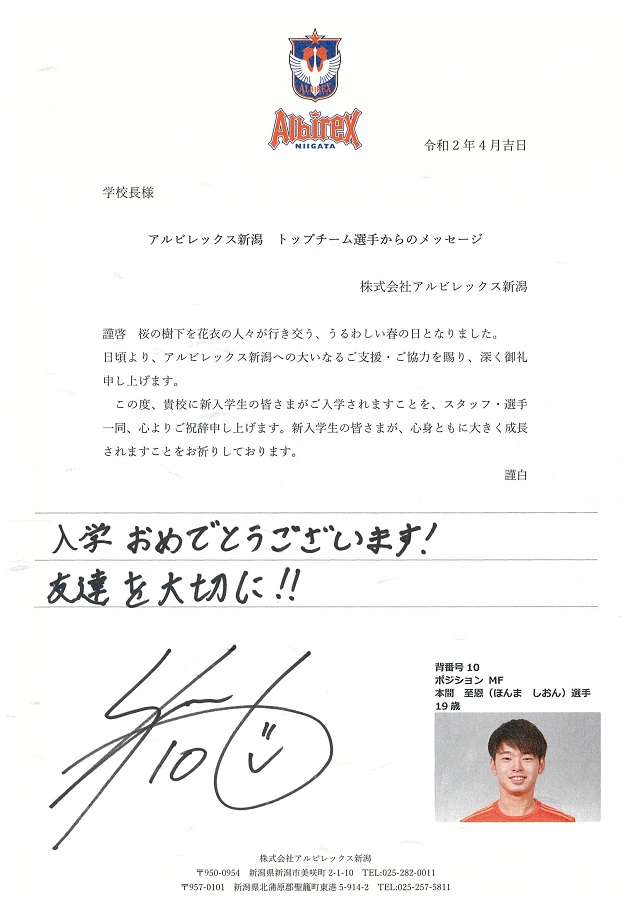 ALBIREX
Albirex
NIIGATA
令和２年４月吉日
学校長様
アルビレックス新潟　トップチーム選手からのメッセージ
株式会社アルビレックス新潟
謹啓　桜の樹下を花衣の人々が行き交う、うるわしい春の日となりました。
日頃より、アルビレックス新潟への大いなるご支援・ご協力を賜り、深く御礼
申し上げます。
この度、貴校に新入学生の皆さまがご入学されますことを、スタッフ・選手
一同、心よりご祝辞申し上げます。新入学生の皆さまが、心身ともに大きく成長
されますことをお祈りしております。
謹白
入学おめでとうございます!
友達を大切に!!
10
背番号10
ポジション MF
本間　至恩（ほんま　しおん）選手
19歳
株式会社アルビレックス新潟
〒950-0954　新潟県新潟市美咲町 2-1-10　TEL:025-282-0011
〒957-0101　新潟県北蒲原郡聖籠町東港 5-914-2　TEL:025-257-5811